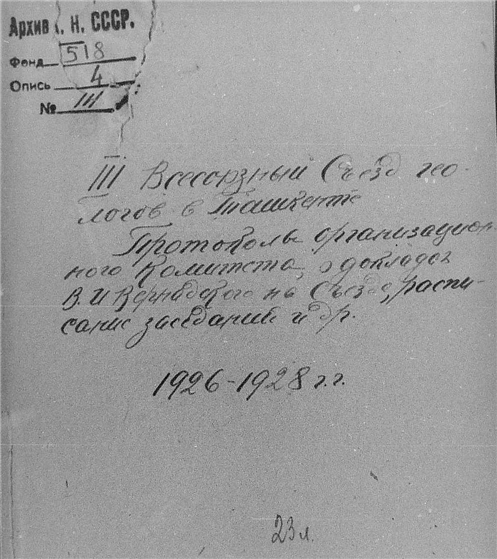 Архив А. Н. СССР.
Фонд 518
Опись 4
№ 111
III Всесоюзный Съезд гео-
логов в Ташкенте
Протоколы организацион
ного Комитета, о докладах
В. И. Вернадского на Съезде, распи-
сание заседаний и др.
1926-1928 г.г.
23 л.